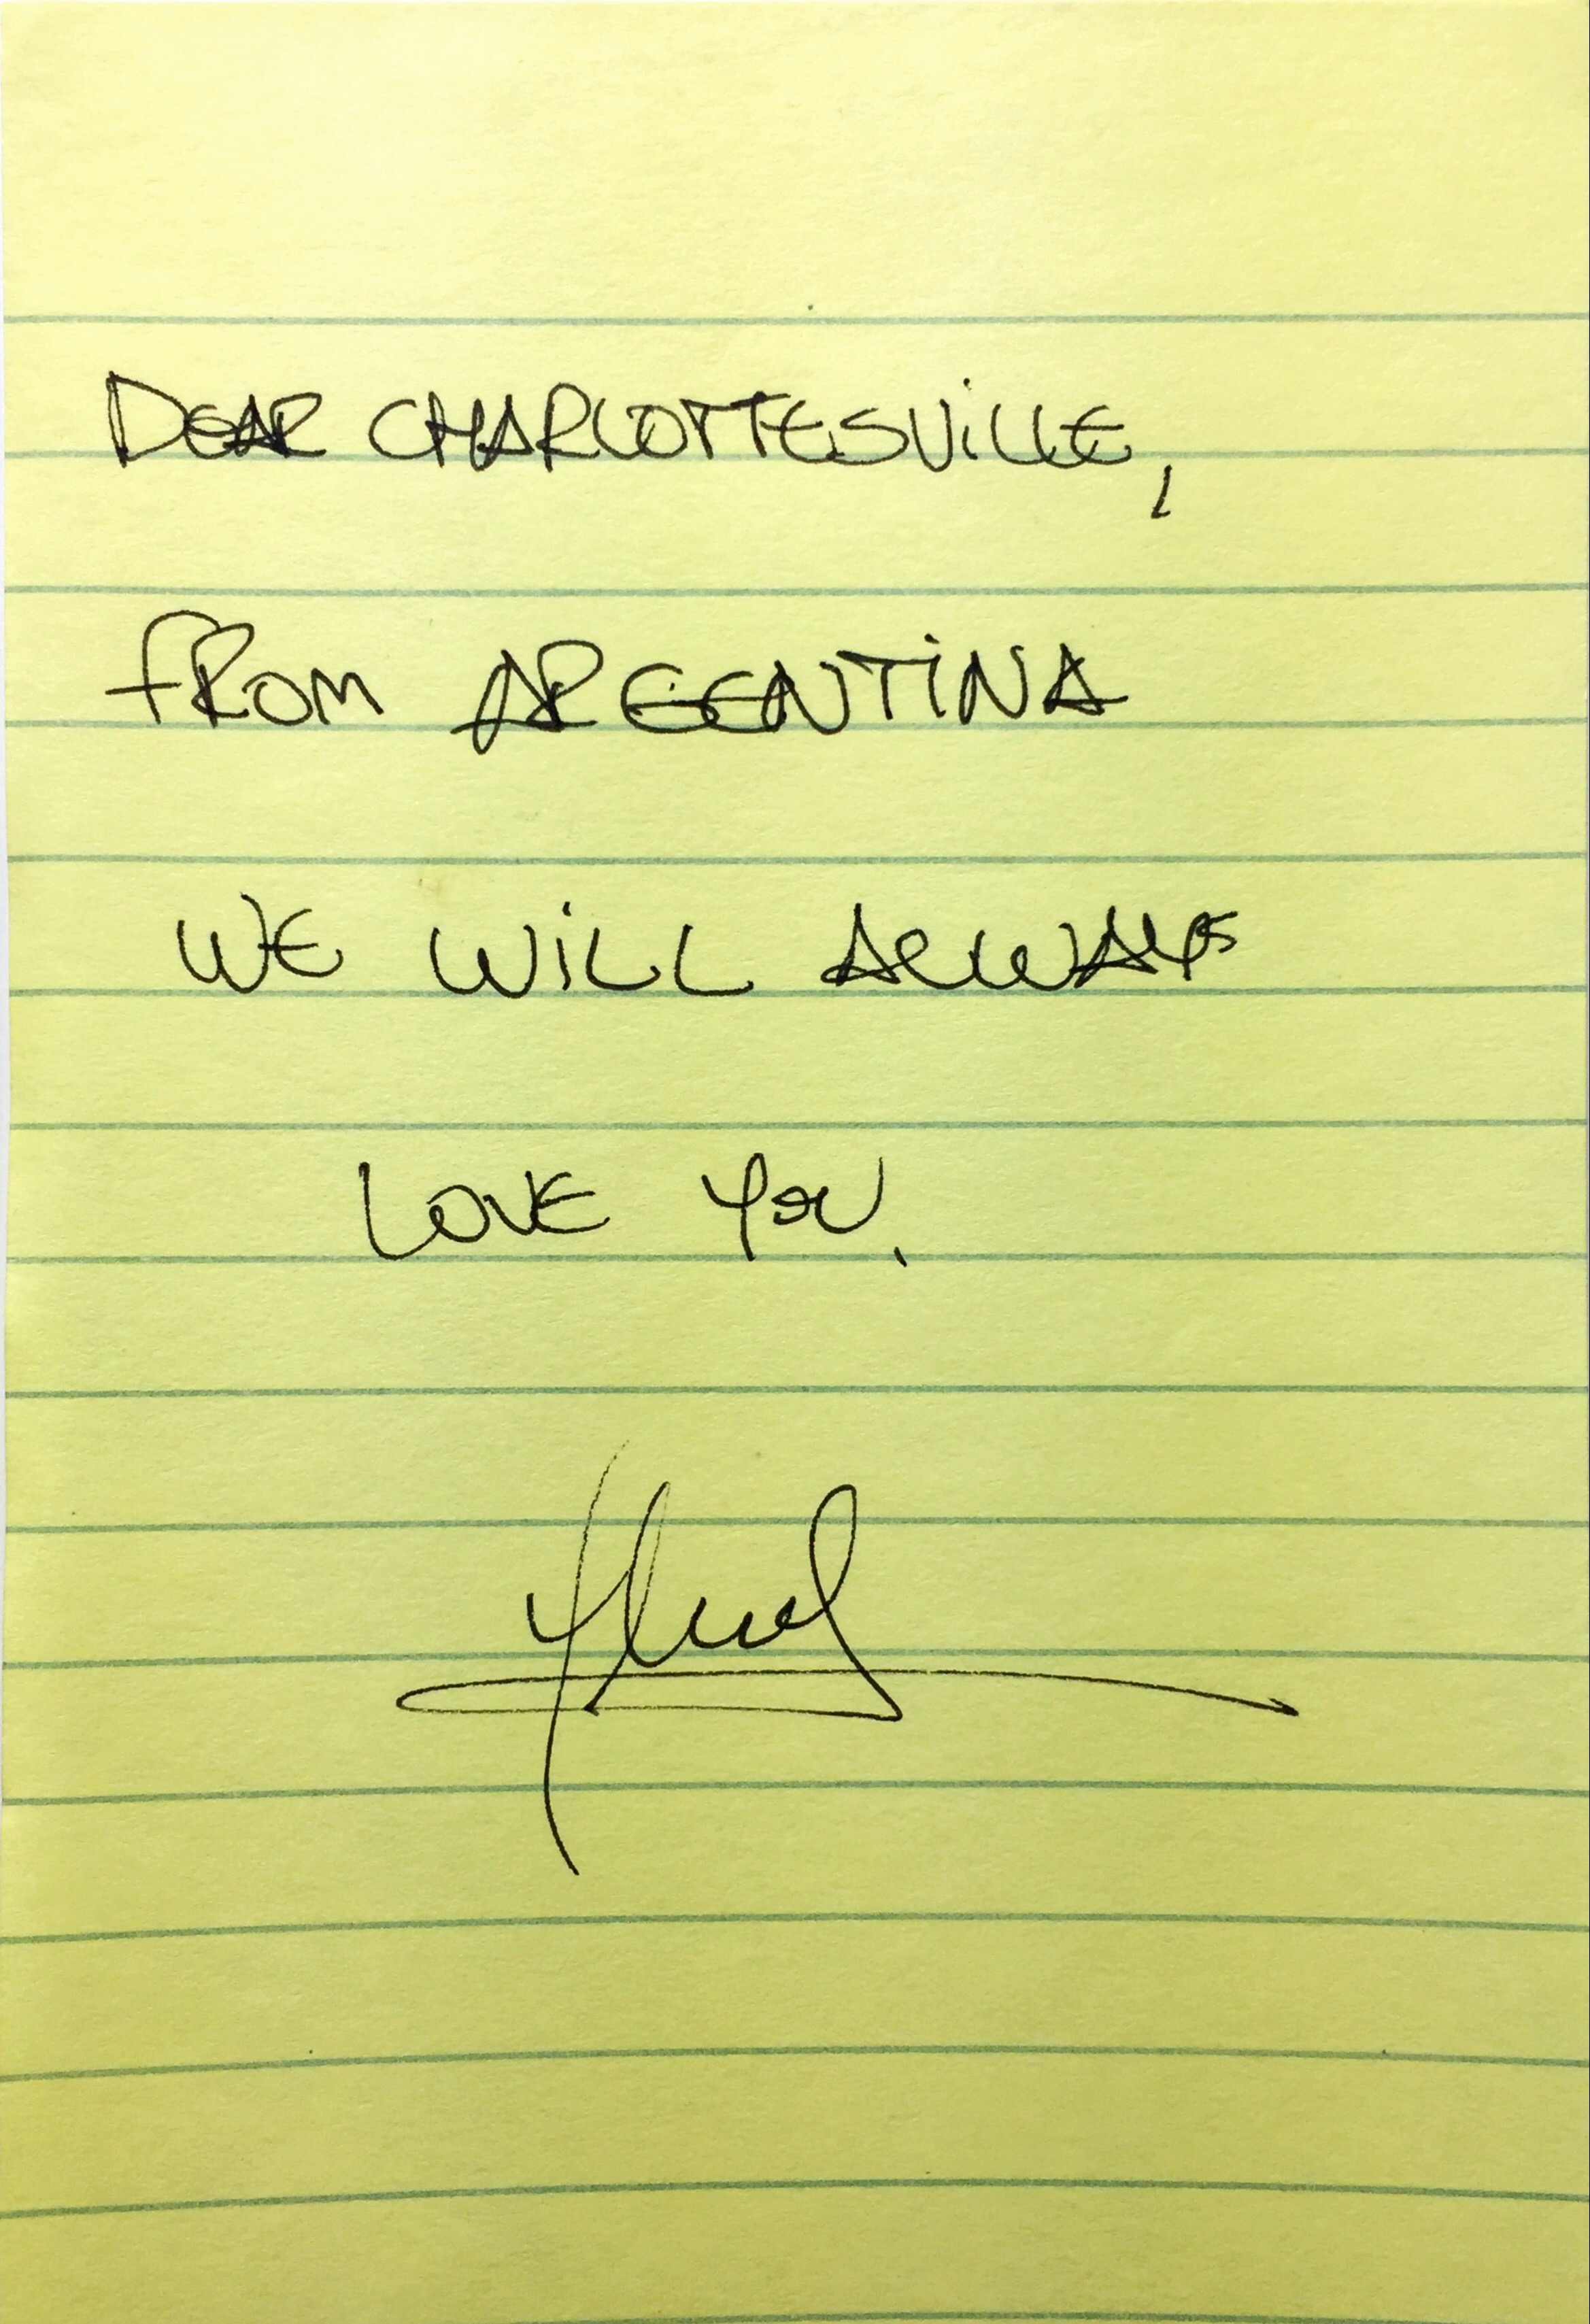 DEAR CHARLOTTESVILLE,
FROM ARGENTINA
WE WILL ALWAYS
LOVE YOU.